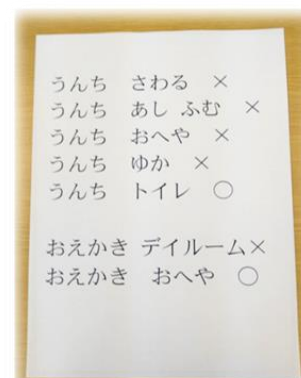 うんち　さわる　×
うんち　あし ふむ　×
うんち　おへや　×
うんち　ゆか　×
うんち　トイレ　○
おえかき デイルーム×
おえかき　おへや　○